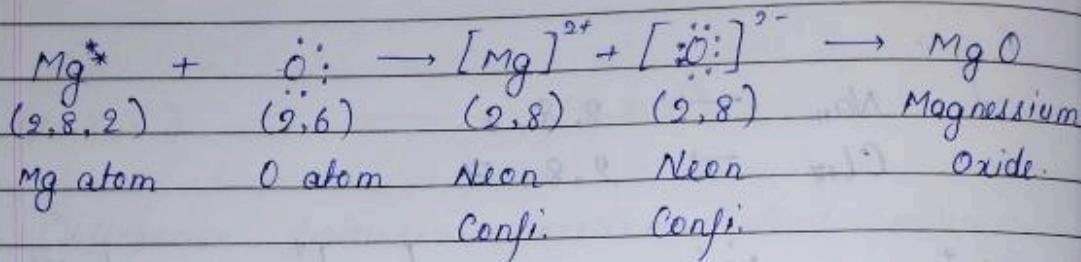 Mg** + :Ö: → [Mg]²⁺ + [:Ö:]²⁻ → MgO
(2,8,2) (2,6) (2,8) (2,8) Magnessium
Mg atom O atom Neon Neon Oxide.
Confi. Confi.